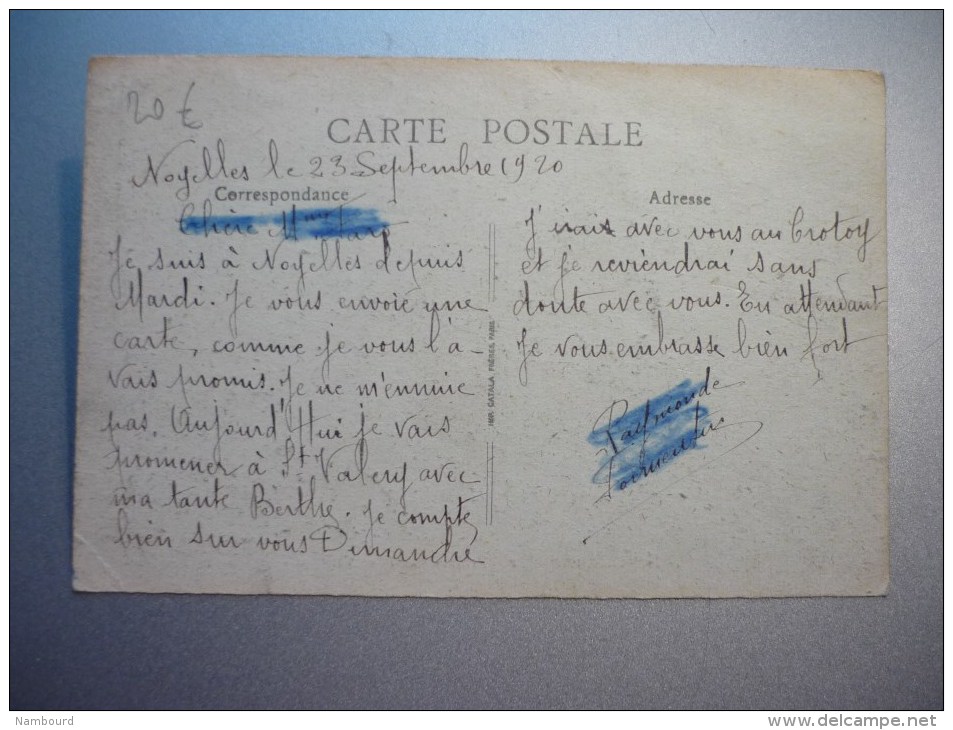 20 €
CARTE POSTALE
Noyelles le 23 Septembre 1920
Correspondance
Chère
Je suis à Noyelles depuis
Mardi. Je vous envoie une
carte, comme je vous l'a-
vais promis. Je ne m'ennuie
pas. Aujourd'Hui je vais
promener à St Valery avec
ma tante Berthe. Je compte
bien sur vous Dimanche
IMP. CATALA FRÈRES, PARIS
Adresse
J'irais avec vous au Crotoy
et je reviendrai sans
doute avec vous. En attendant
Je vous embrasse bien fort
Raymonde
Nambourd
www.delcampe.net